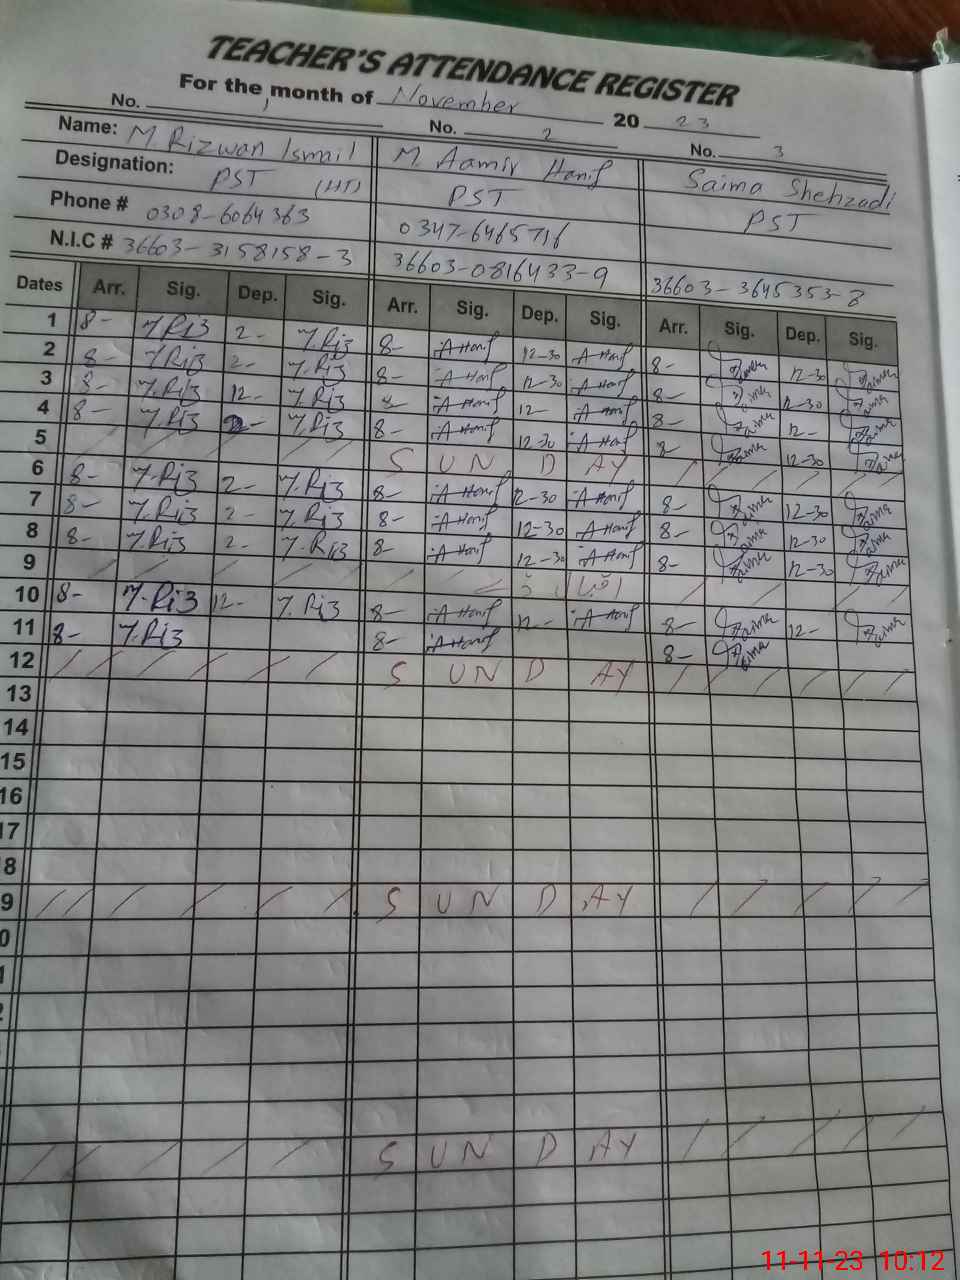 TEACHER'S ATTENDANCE REGISTER
For the month of November 2023
No. 1 No. 2 No. 3
Name: M. Rizwan Ismail M. Aamir Hanif Saima Shehzadi
Designation: PST (HT) PST PST
Phone # 0308-6064363 0347-6465716
N.I.C # 36603-3158158-3 36603-0816433-9 36603-3645353-8
Dates Arr. Sig. Dep. Sig. Arr. Sig. Dep. Sig. Arr. Sig. Dep. Sig.
1 8- M.Riz 2- M.Riz 8- A Hanif 12-30 A Hanif 8- Saima 12-30 Saima
2 8- M.Riz 2- M.Riz 8- A Hanif 12-30 A Hanif 8- Saima 12-30 Saima
3 8- M.Riz 12- M.Riz 8- A Hanif 12- A Hanif 8- Saima 12- Saima
4 8- M.Riz 2- M.Riz 8- A Hanif 12-30 A Hanif 8- Saima 12-30 Saima
5 SUNDAY
6 8- M.Riz 2- M.Riz 8- A Hanif 12-30 A Hanif 8- Saima 12-30 Saima
7 8- M.Riz 2- M.Riz 8- A Hanif 12-30 A Hanif 8- Saima 12-30 Saima
8 8- M.Riz 2- M.Riz 8- A Hanif 12-30 A Hanif 8- Saima 12-30 Saima
9 اقبال ڈے
10 8- M.Riz 12- M.Riz 8- A Hanif 12- A Hanif 8- Saima 12- Saima
11 8- M.Riz 8- A Hanif 8- Saima
12 SUNDAY
13
14
15
16
17
8
9 SUNDAY
0
1
2
SUNDAY
11-11-23 10:12